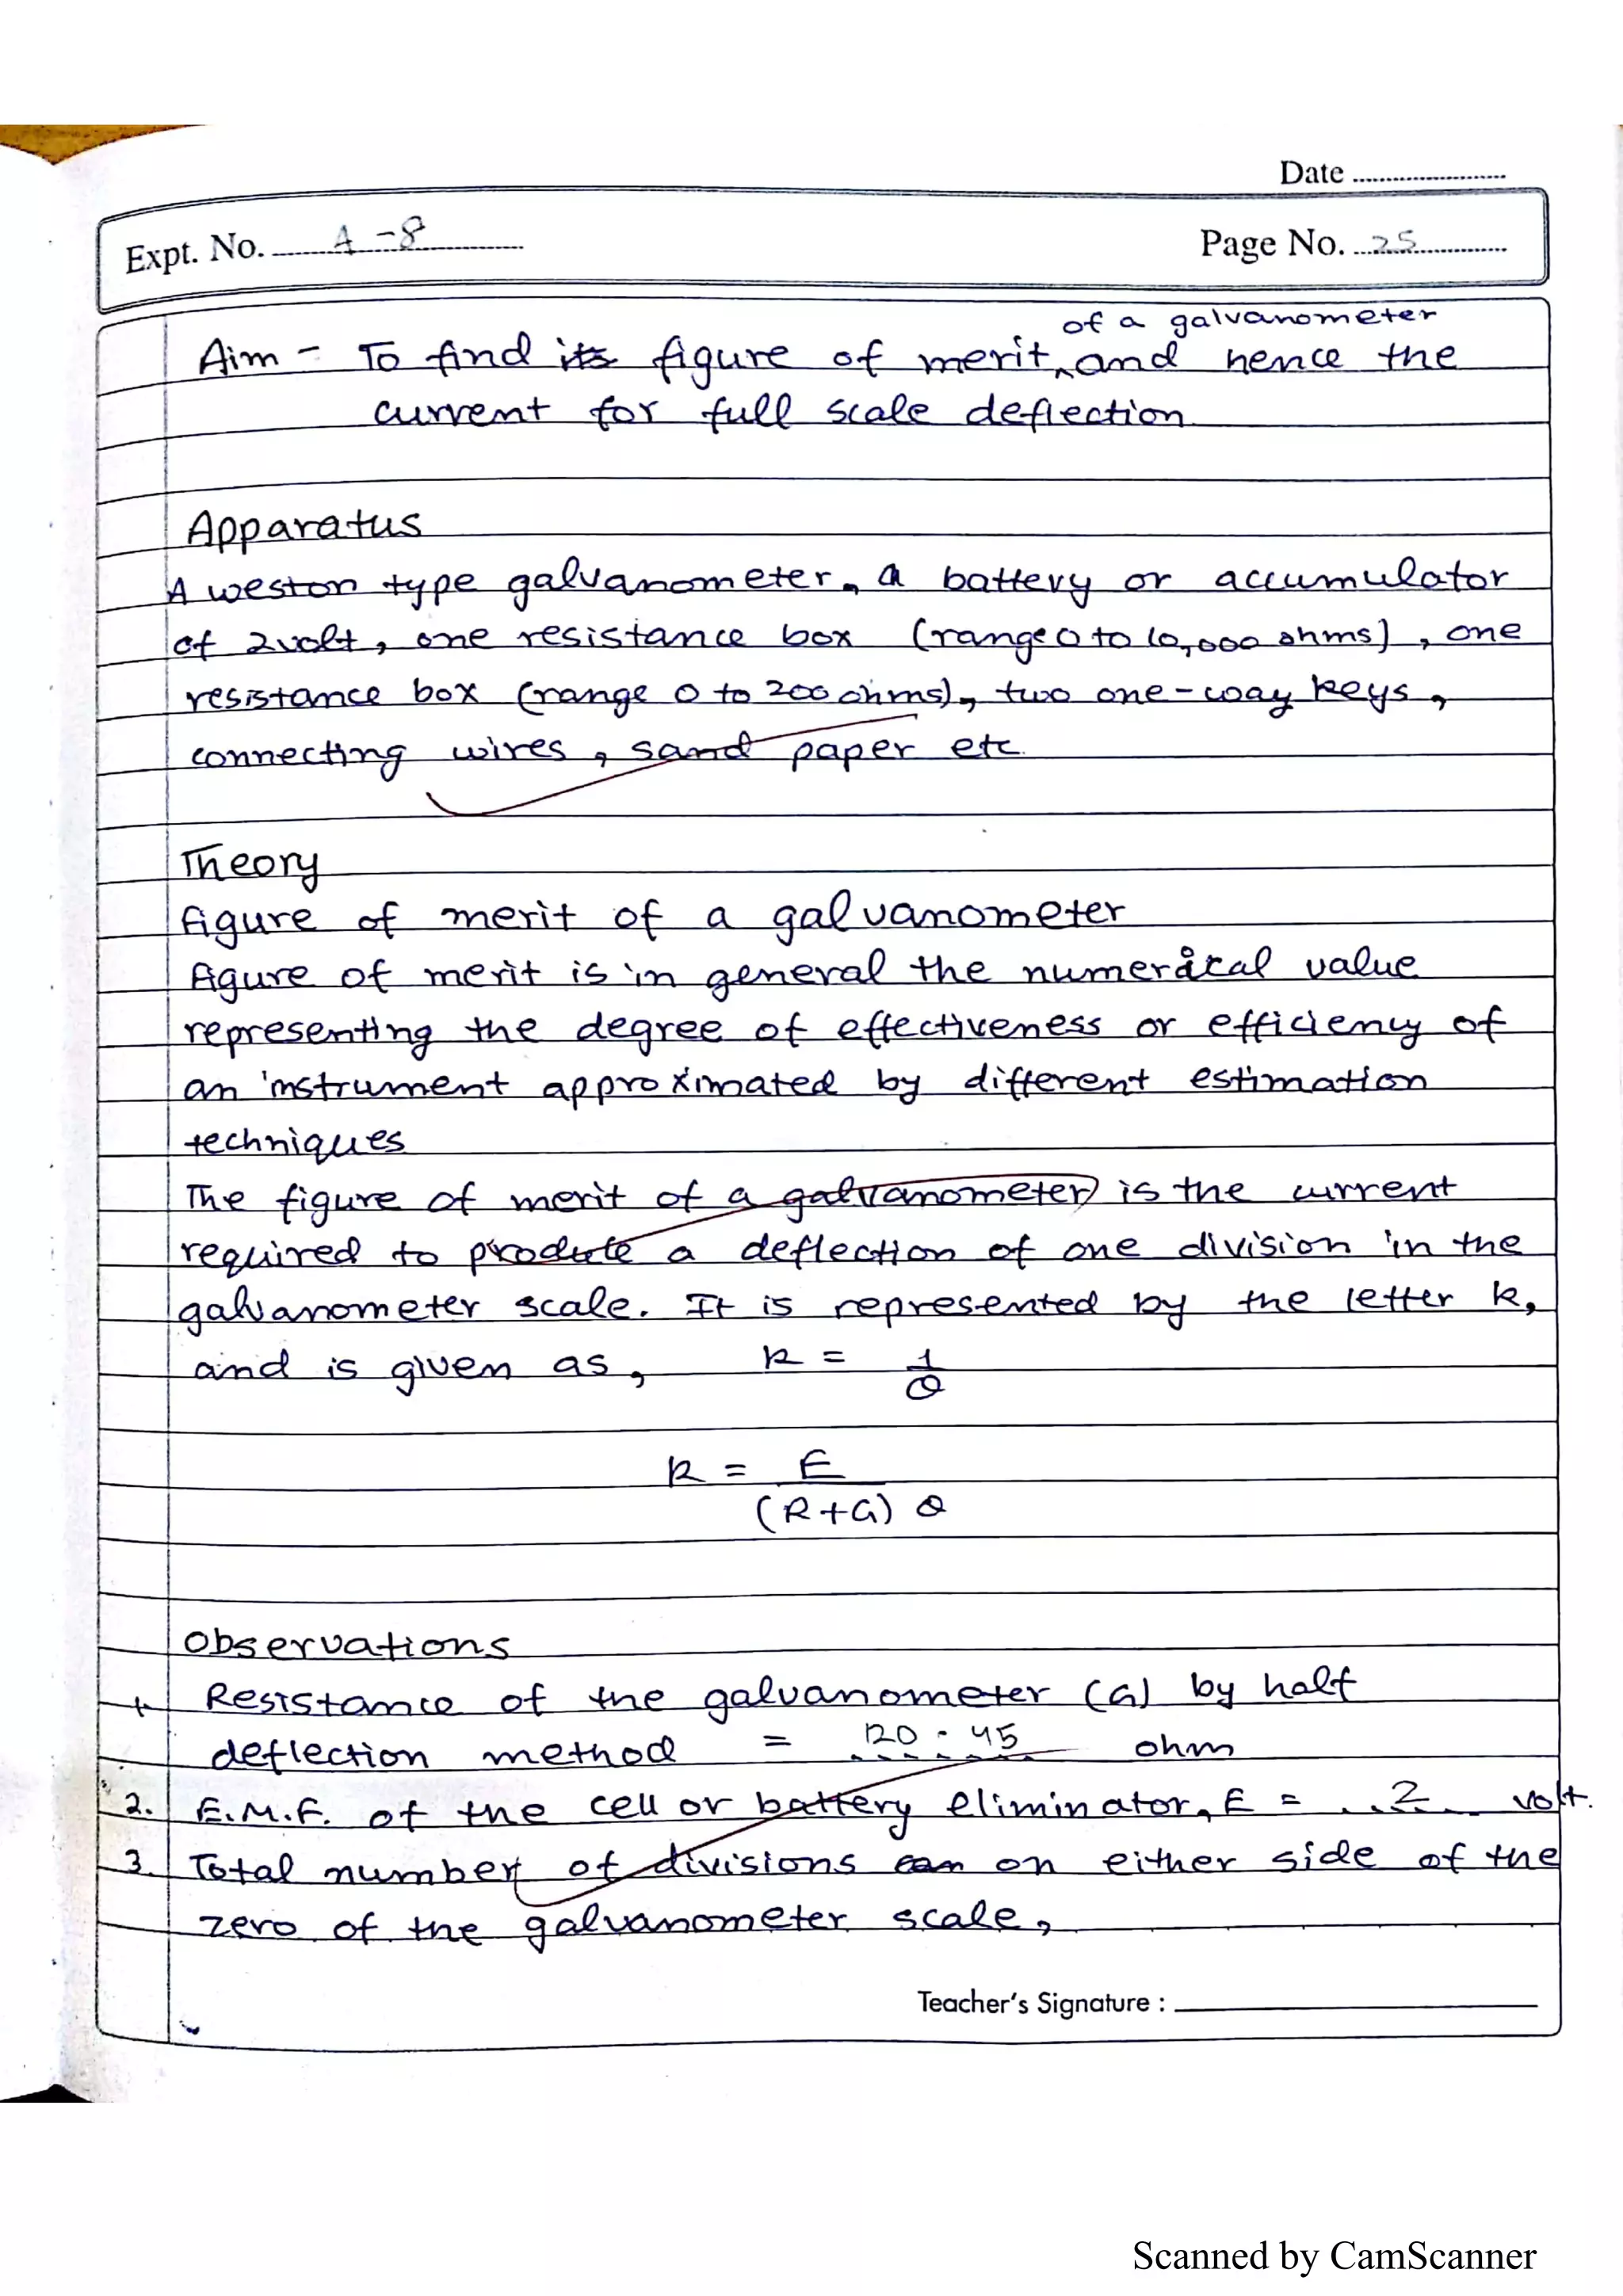 Date
Expt. No. A-8
Page No. 25
of a galvanometer
Aim - To find its figure of merit ^ and hence the
current for full scale deflection
Apparatus
A weston type galvanometer, a battery or accumulator
of 2volt, one resistance box (range 0 to 10,000 ohms), one
resistance box (range 0 to 200 ohms), two one-way keys,
connecting wires, sand paper etc.
Theory
figure of merit of a galvanometer
figure of merit is in general the numerical value
representing the degree of effectiveness or efficiency of
an instrument approximated by different estimation
techniques
The figure of merit of a galvanometer is the current
required to produce a deflection of one division in the
galvanometer scale. It is represented by the letter k,
and is given as, k = I/θ
k = E
(R+G) θ
Observations
1. Resistance of the galvanometer (G) by half
deflection method = 120.45 ohm
2. E.M.F. of the cell or battery eliminator, E = ...2... volt.
3. Total number of divisions on either side of the
zero of the galvanometer scale,
Teacher's Signature :
Scanned by CamScanner